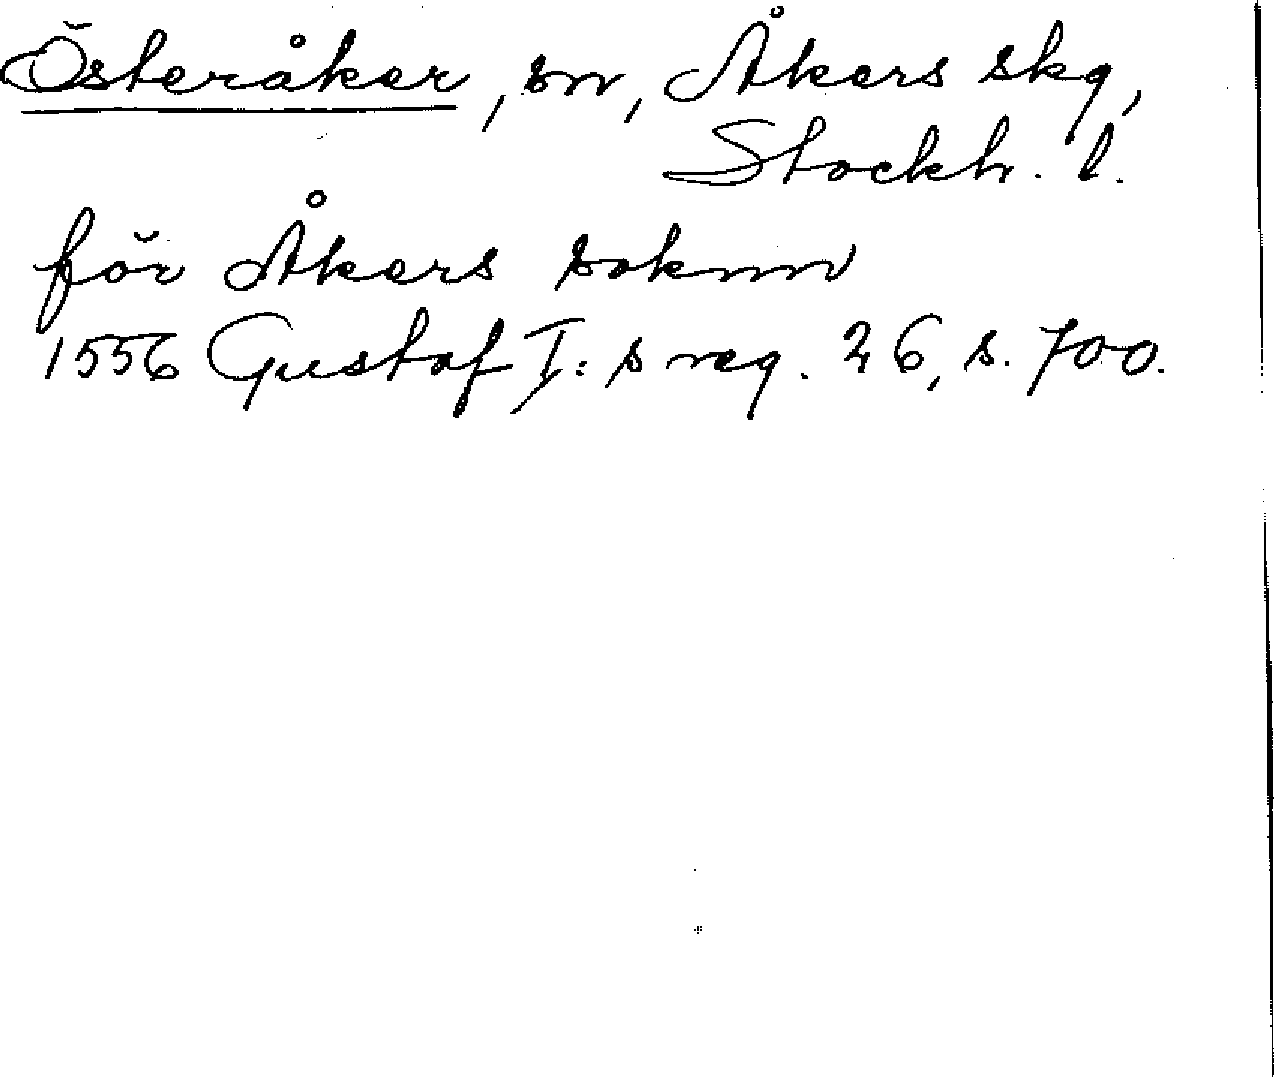 Österåker, sn, Åkers skg,
Stockh. l.
för Åkers soknn
1556 Gustaf I:s reg. 26, s. 700.